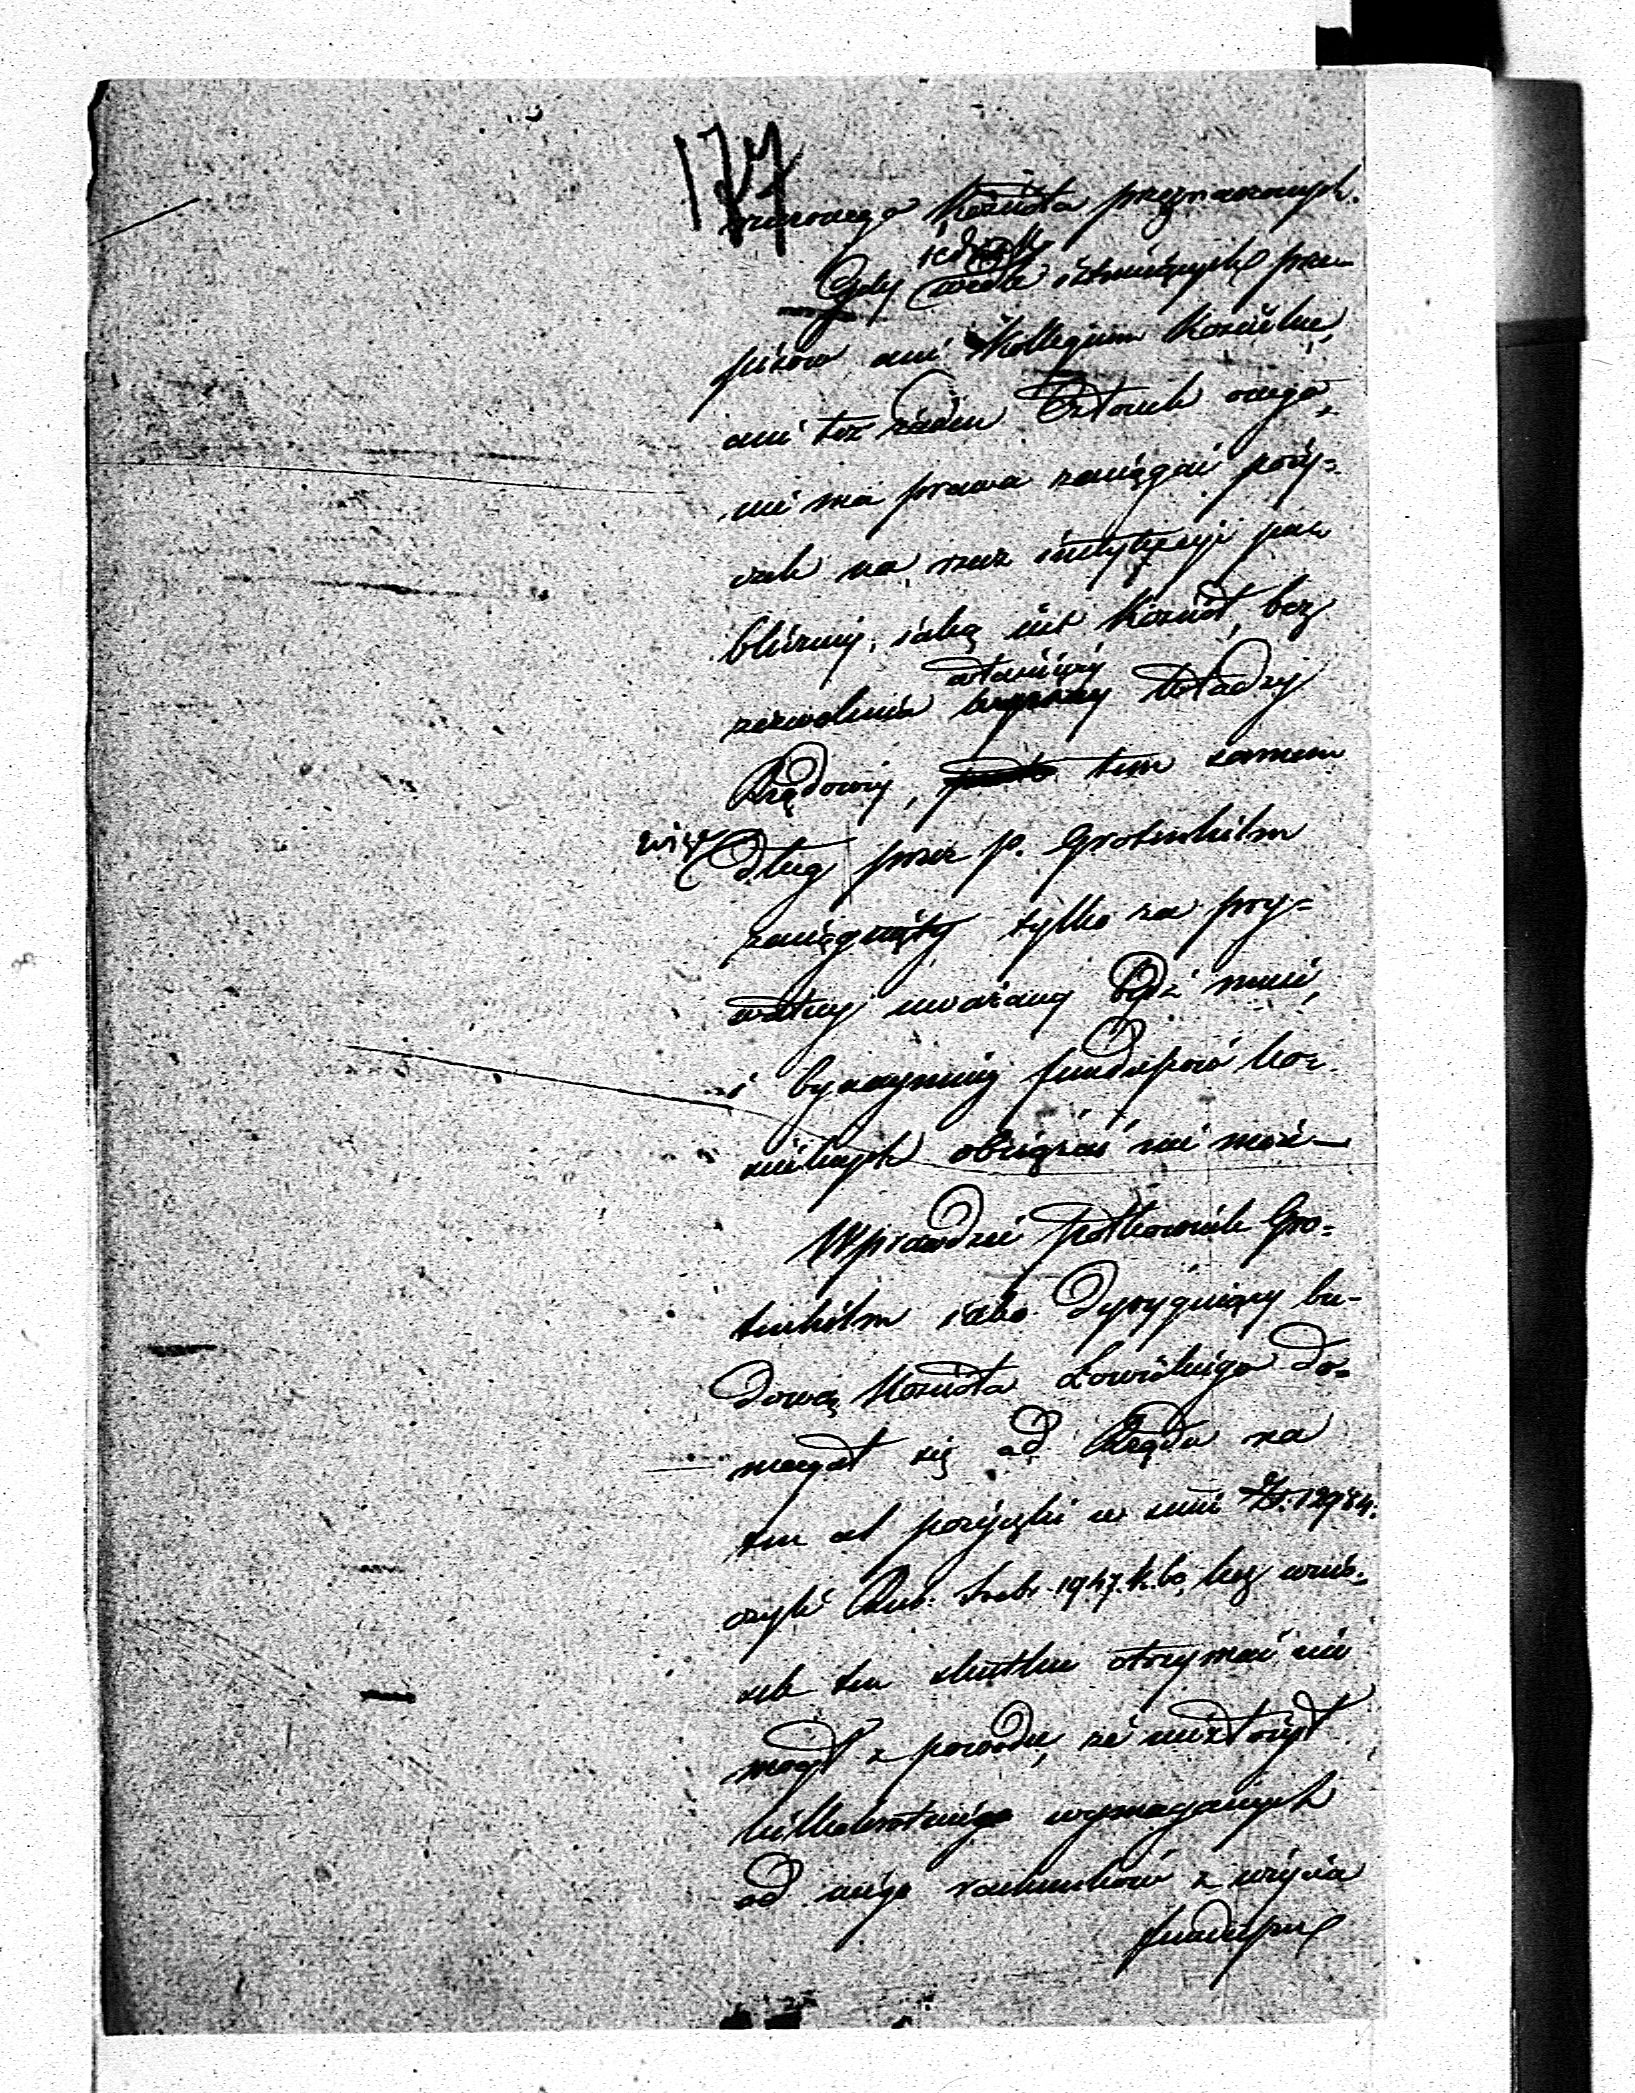 177
rzeczonego Kościoła przeznaczonych.
jednak
Gdy wedle istniejących prze-
pisów ani Kollegium Kościelne,
ani też żaden Członek onego,
nie ma prawa zaciągać poży-
czek na rzecz instytucyi pu-
bliczney, jaką jest Kościół, bez
właściwéj
zezwolenia Władzy
Rządowéj, tem samem
więc
dług przez p. Grotenhilm
zaciągnięty tylko za pry-
watny uważany bydź musi,
i bynaymniéj funduszów Koś-
cielnych obciążać nie może
Wprawdzie Półkownik Gro-
tenhilm jako dyrygujący bu-
dową Kościoła Łowickiego do-
magał się od Rządu na
ten cel pożyczki w sumie Zł. 12984.
czyli Rub. Sreb. 1947. k. 60, lecz wnio-
sek ten skutku otrzymać nie
mógł z powodu, że nie złożył
kilkakrotnie wymaganych
od niego rachunków z użycia
funduszu